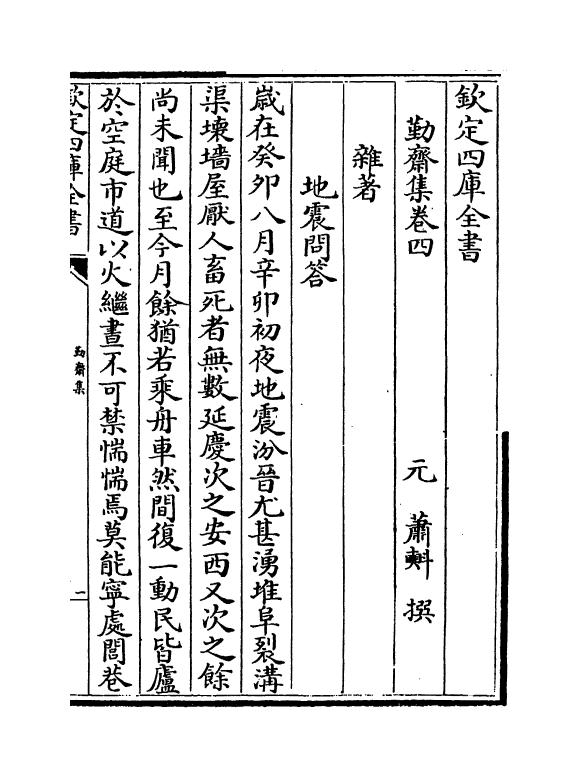 欽定四庫全書
勤齋集卷四
元 蕭㪺 撰
雜著
地震問答
嵗在癸夘八月辛卯初夜地震汾晉尤甚湧堆阜裂溝
渠壊墻屋厭人畜死者無數延慶次之安西又次之餘
尚未聞也至今月餘猶若乘舟車然間復一動民皆廬
於空庭市道以火繼晝不可禁惴惴焉莫能寧處閭巷
欽定四庫全書
勤齋集
一